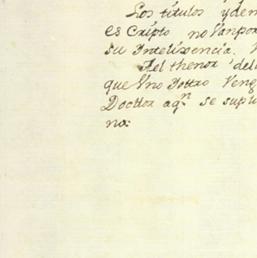 Los títulos yden
es Cripto no Vanpor
su Intelixencia.
Ael thenor del
que Uno Dottro Veng
Docttor aqn se suplc
na: